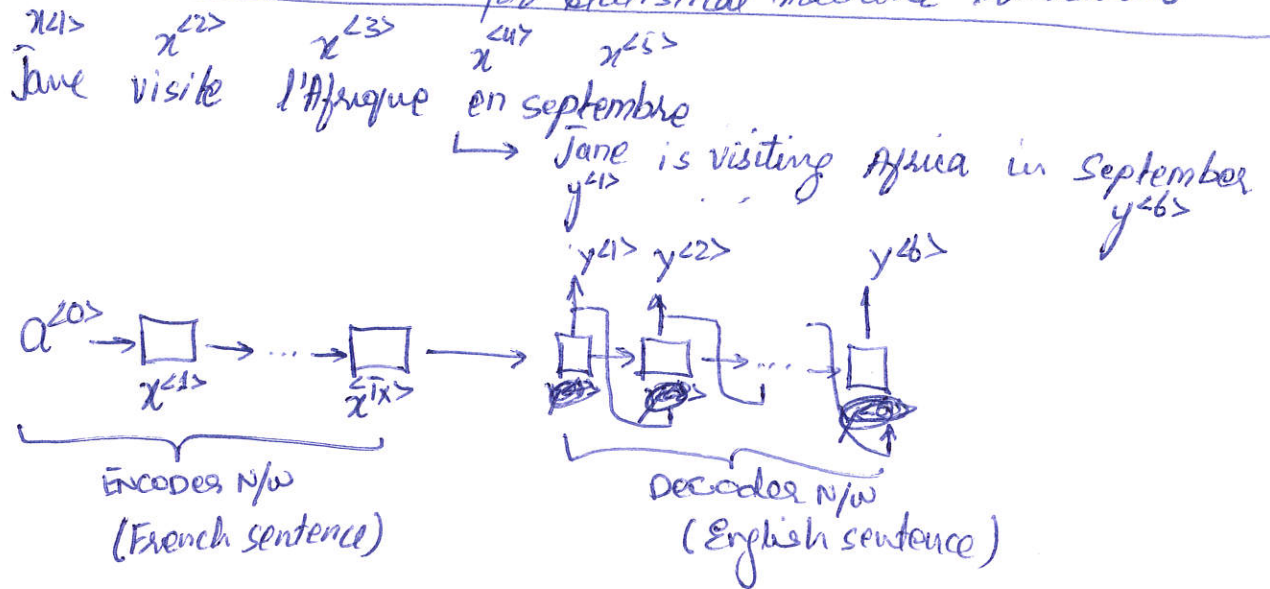 x<1> x<2> x<3> x<4> x<5>
Jane visite l'Afrique en septembre
→ Jane is visiting Africa in September
y<1> .. . y<6>
y<1> y<2> y<6>
a<0> → → ... → → → → ... →
x<1> x<Tx>
ENCODER N/W DECODER N/W
(French sentence) (English sentence)